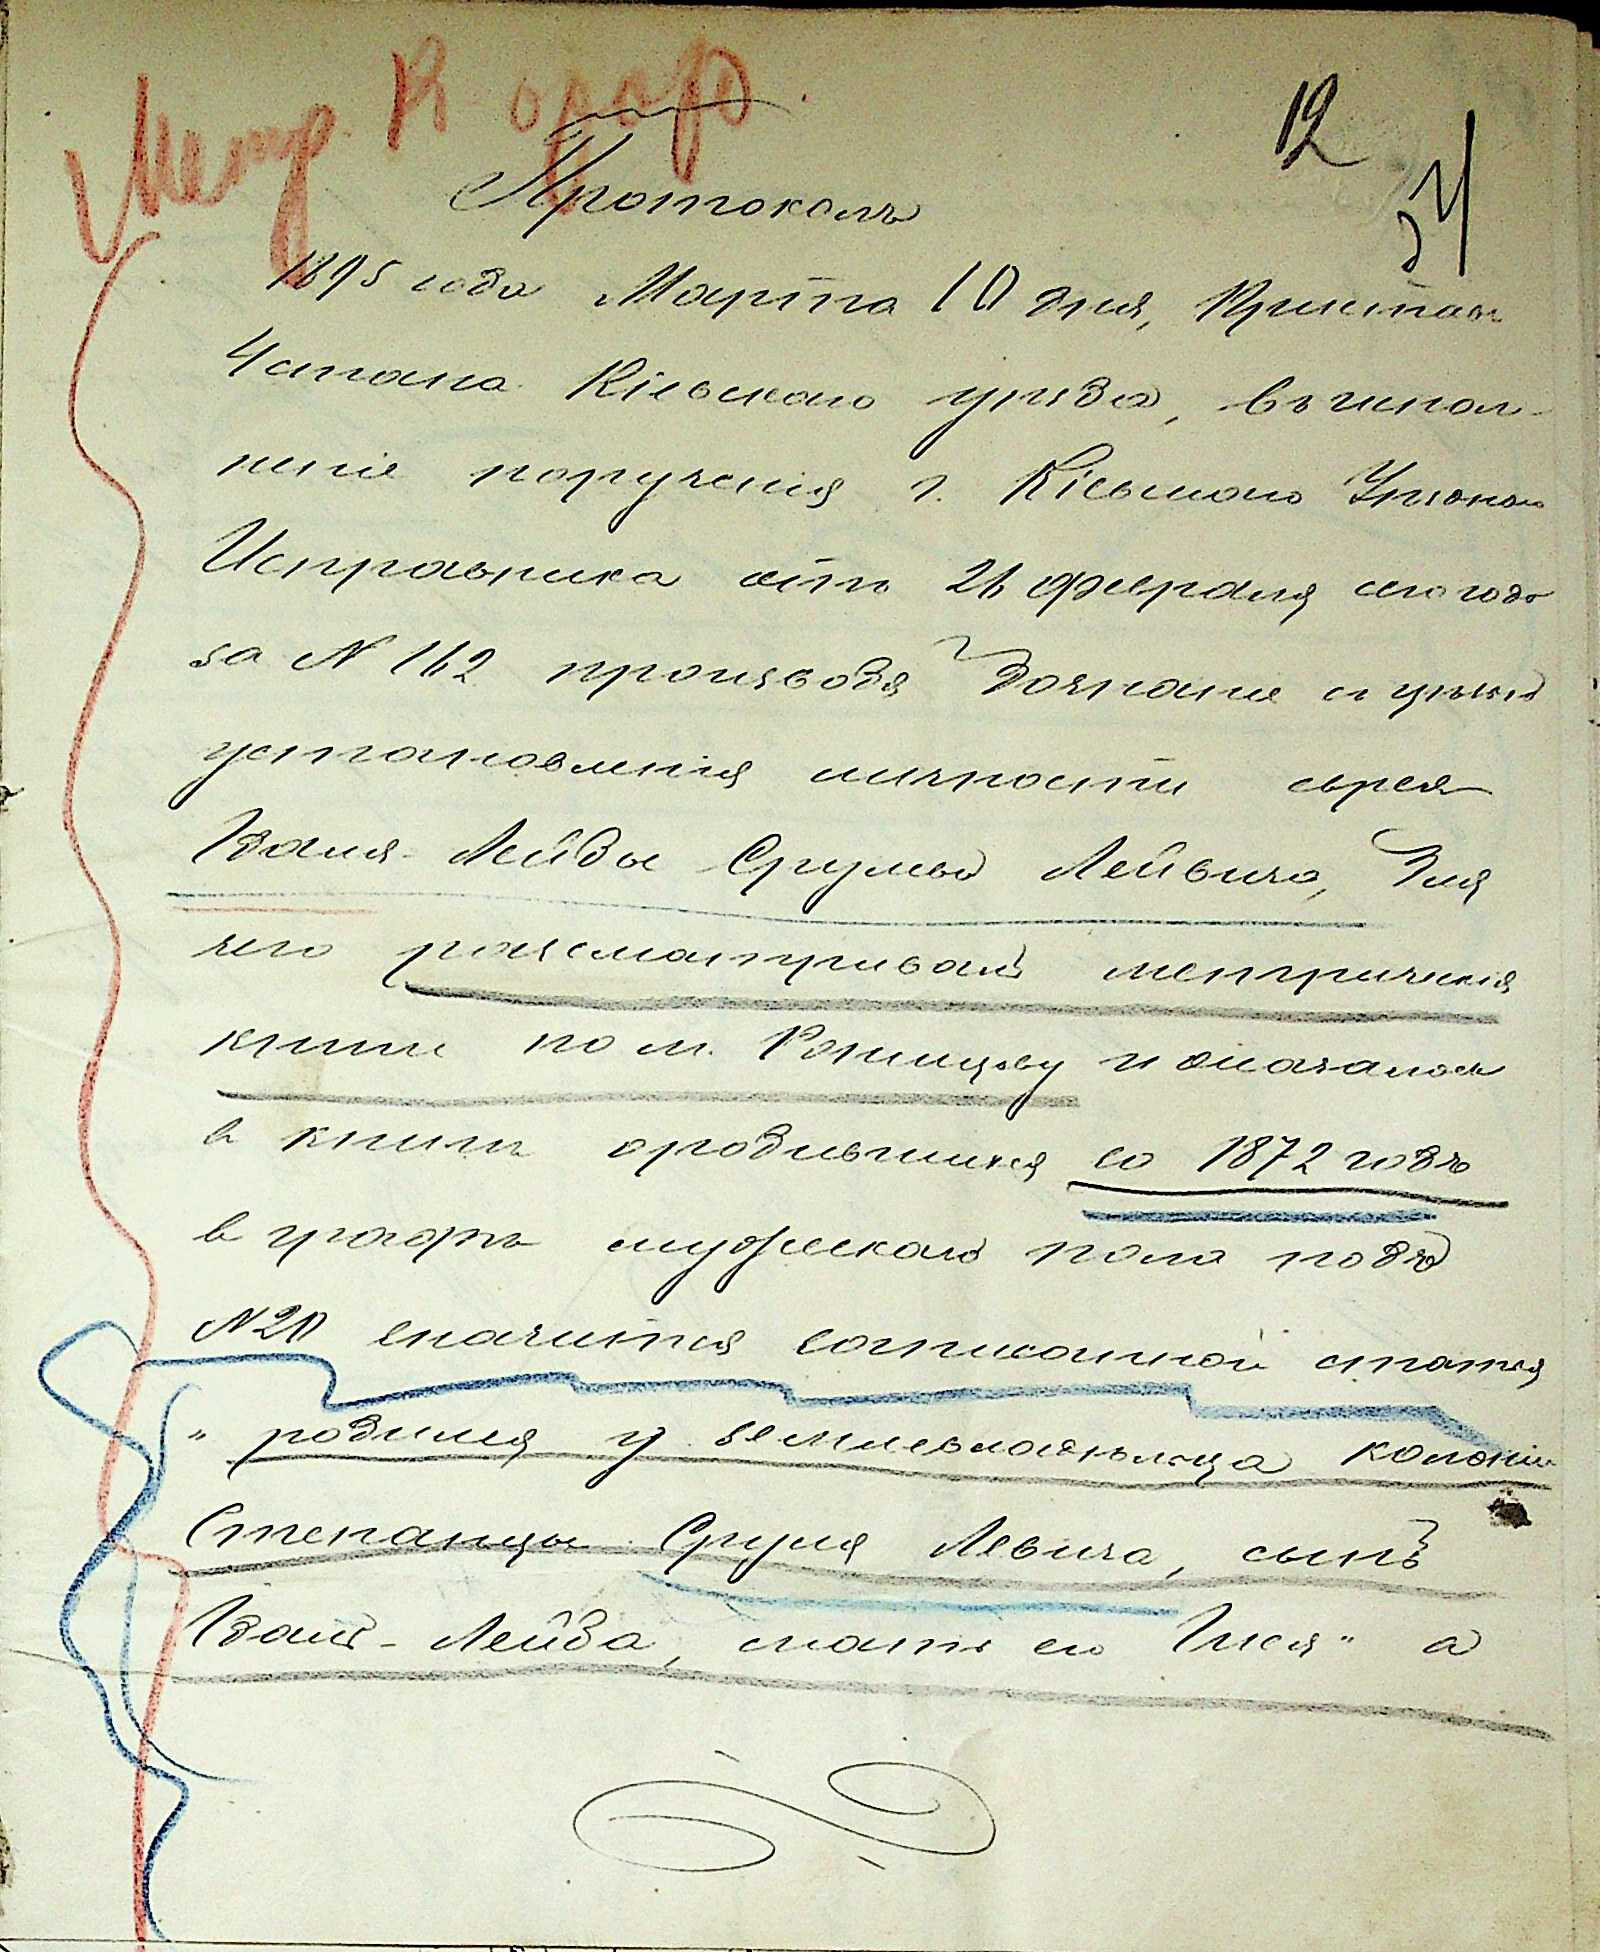 Метр. К
12
34
Протоколъ
1895 года Марта 10 дня, Приставъ
4 стана Кіевскаго уѣзда, въ испол-
неніе порученія г. Кіевскаго Уѣзднаго
Исправника отъ 21 февраля сего года
за N 162 производя дознаніе съ цѣлью
установленія личности еврея
Волля-Лейбы Срулева Левича, для
чего разсматривалъ метрическія
книги по м. Ржищеву и оказалось
въ книгѣ о родившихся за 1872 годъ
въ графѣ мужескаго пола подъ
N 20 значится записанной статья
" родился у землевладѣльца колоніи
Степанцы Сруля Левича, сынъ
Волль-Лейба, мать его " а